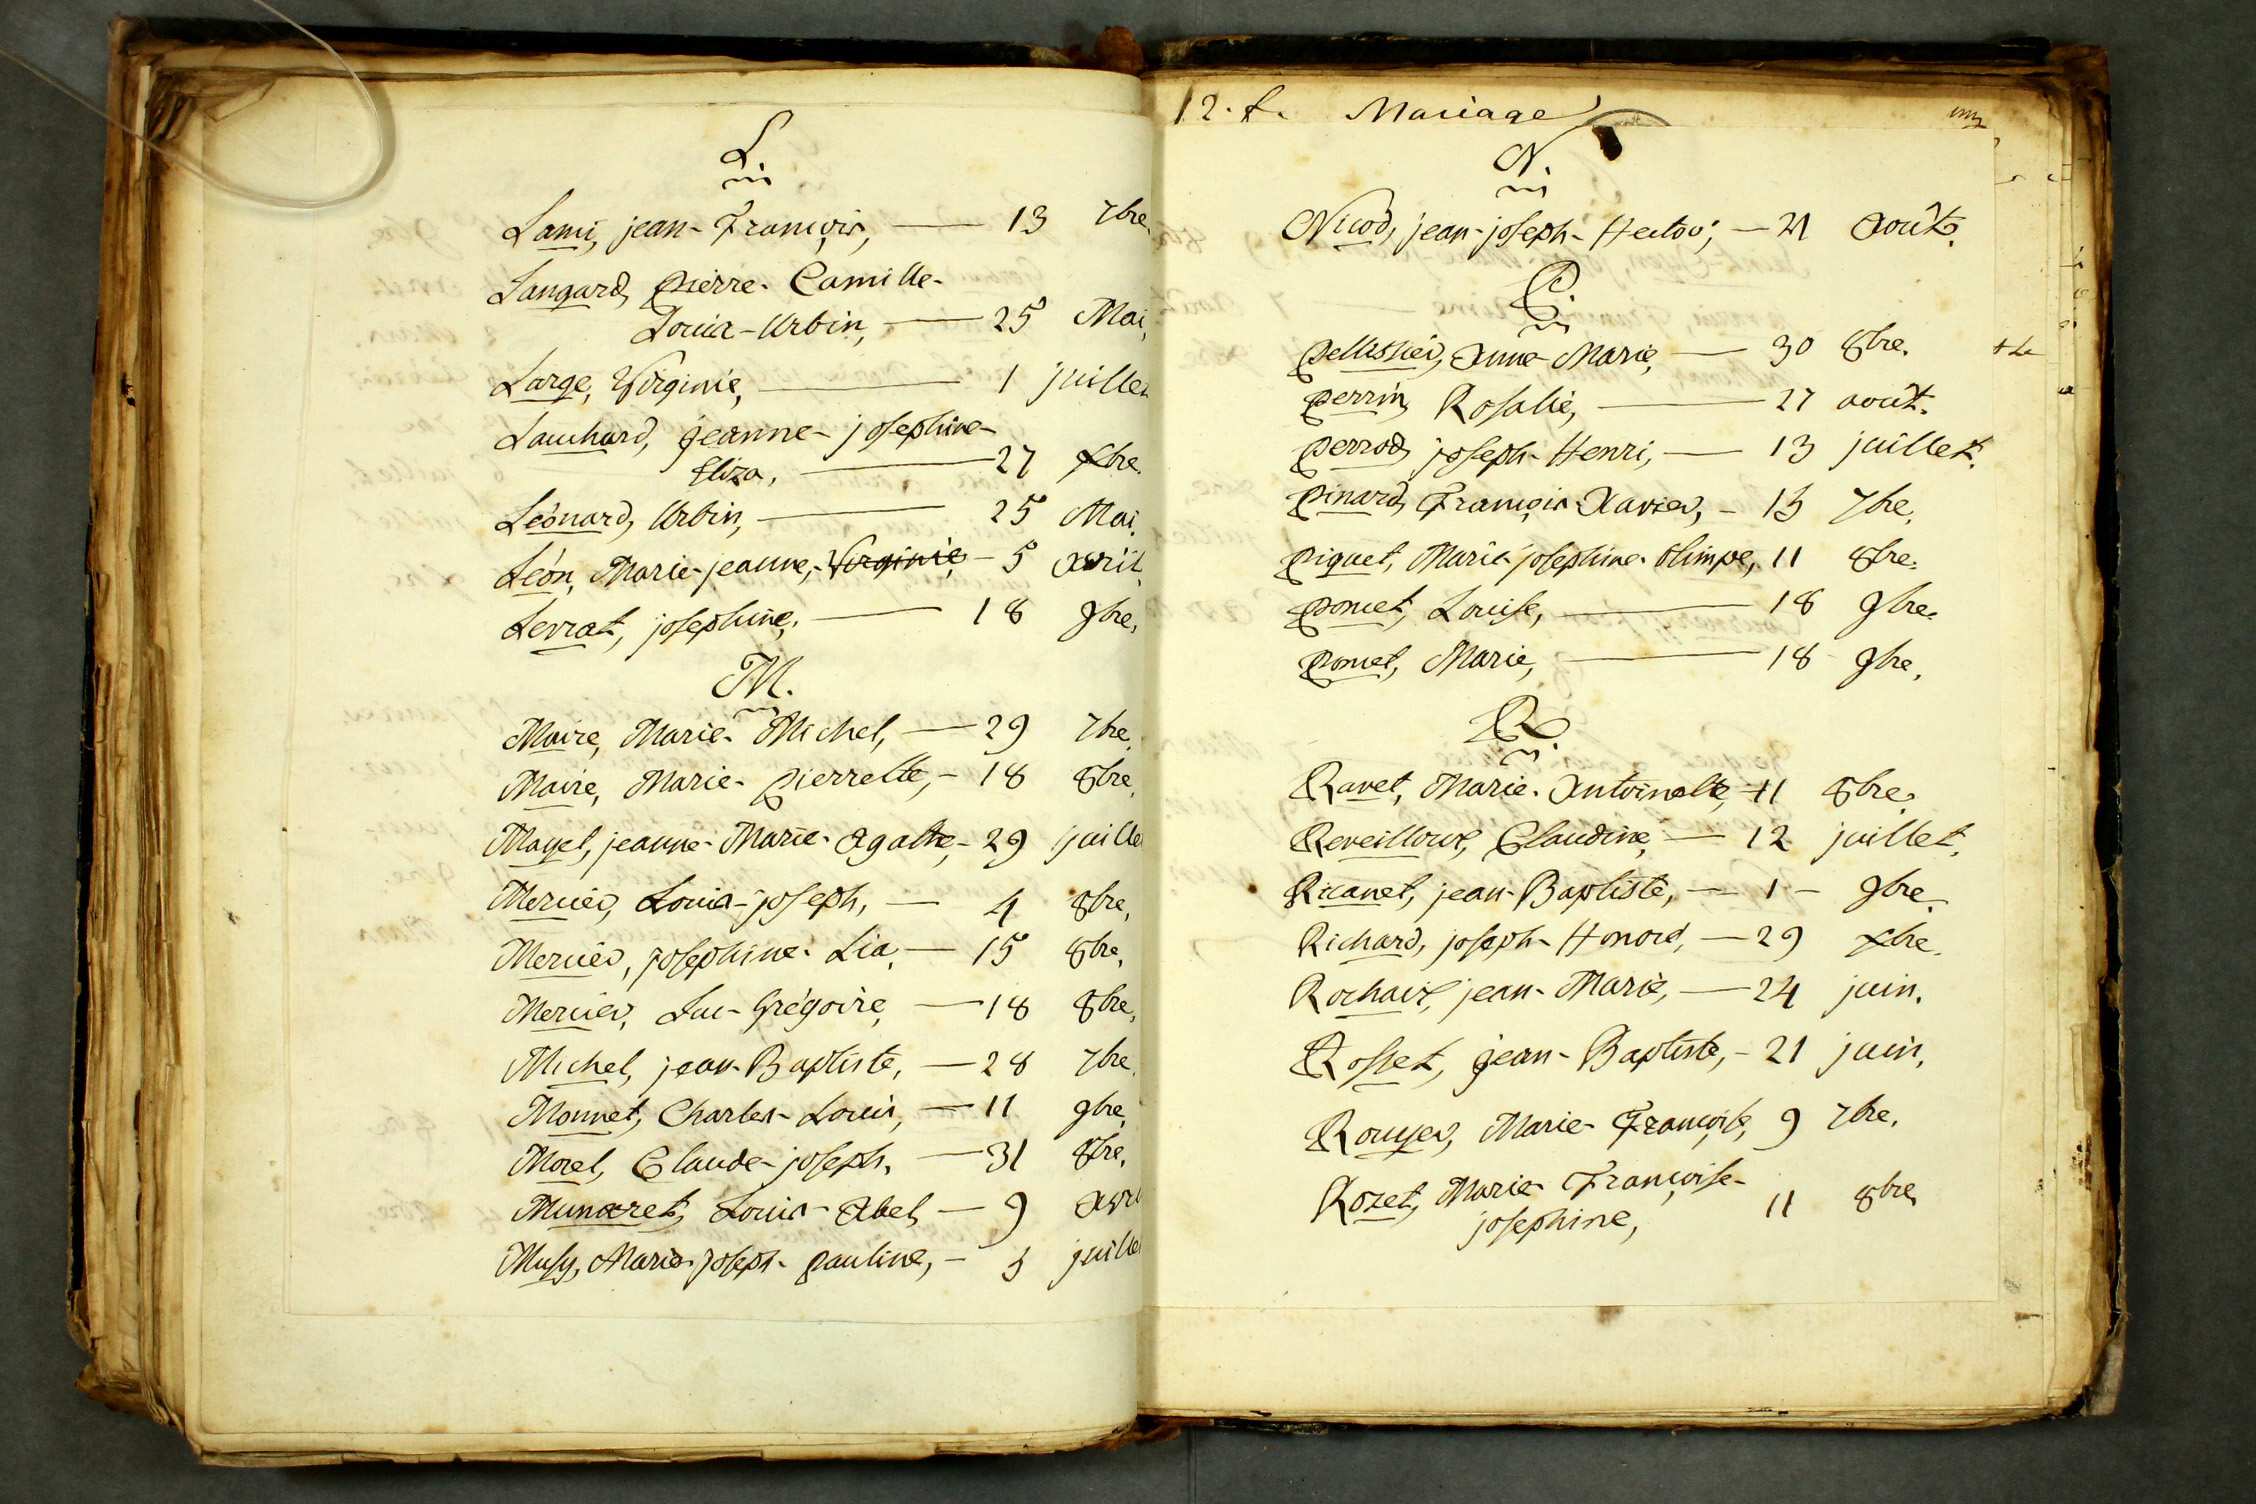 L.
Lami, jean-François, — 13 7bre,
Langard, Pierre-Camille-
Louis-Urbin, — 25 Mai,
Large, Virginie, — 1 juillet
Lauchard, jeanne-josephine-
Eliza, — 27 Xbre.
Léonard, Urbin, — 25 Mai.
Léon, Marie-jeanne,-Virginie, — 5 avril.
Lerrat, josephine, — 18 9bre,
M.
Maire, Marie-Michel, — 29 7bre,
Maire, Marie-Pierrette, — 18 8bre,
Mayet, jeanne-Marie-Agathe, — 29 juille
Mercier, Louis-joseph, — 4 8bre,
Mercier, josephine-Lia, — 15 8bre,
Mercier, Luc-Grégoire, — 18 8bre,
Michel, jean-Baptiste, — 28 7bre.
Monnet, Charles-Louis, — 11 9bre,
Morel, Claude-joseph, — 31 8bre,
Muneret, Louis-Abel, — 9 avri
Musy, Marie-joseph-pauline, — 3 juille
12. f. Mariage
N.
Nicod, jean-joseph-Hector, — 21 août.
P.
Pellissier, Anne-Marie, — 30 8bre.
Perrin, Rosalie, — 27 août.
Perrod, joseph-Henri, — 13 juillet.
Pinard, François-Xavier, — 13 7bre,
Piquet, Marie-josephine-Olimpe, 11 8bre.
Poncet, Louise, — 18 9bre.
Poncet, Marie, — 18 9bre,
R.
Ravet, Marie-Antoinette, — 11 8bre.
Reveilloux, Claudine, — 12 juillet,
Ricanet, jean-Baptiste, — 1 — 9bre.
Richard, joseph-Honoré, — 29 Xbre.
Rochaix, jean-Marie, — 24 juin.
Rosset, jean-Baptiste, — 21 juin,
Rouyer, Marie-Françoise, 9 7bre.
Rozet, Marie-Françoise-
josephine, 11 8bre